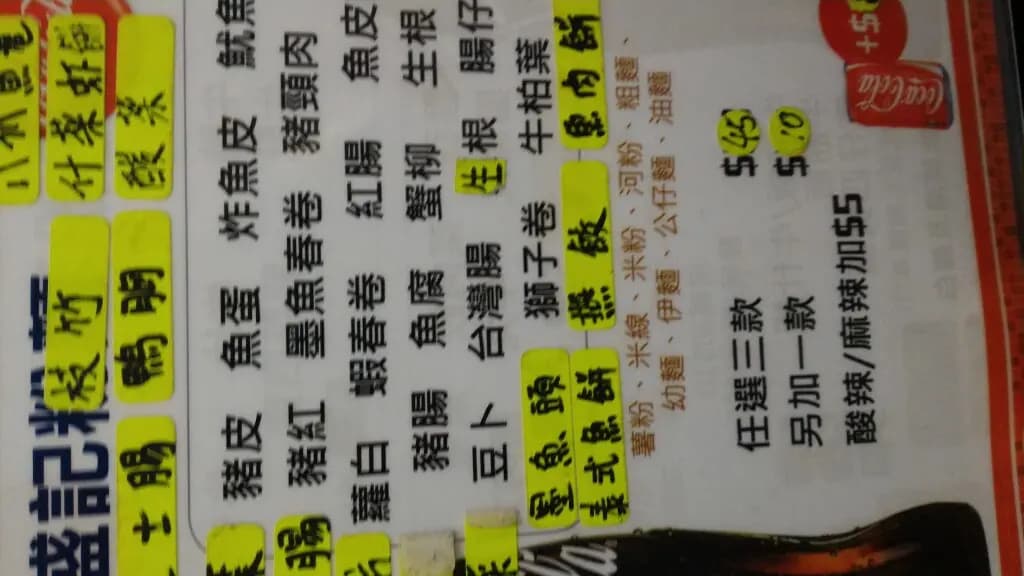 八爪魚
盛記粉
枝竹 什菜
士腸 鴨胸 酸菜
豬皮 魚蛋 炸魚皮 魷魚
豬紅 墨魚春卷 豬頸肉
腸
蘿白 蝦春卷 紅腸 魚皮
豬腸 魚腐 蟹柳 生根
豆卜 台灣腸 生根 腸仔
墨魚頭 獅子卷 牛柏葉
泰式魚餅 燕餃 魚肉餅
薯粉、米線、米粉、河粉、粗麵、
幼麵、伊麵、公仔麵、油麵
任選三款 $45
另加一款 $10
酸辣/麻辣加$5
+$
Coca-Cola